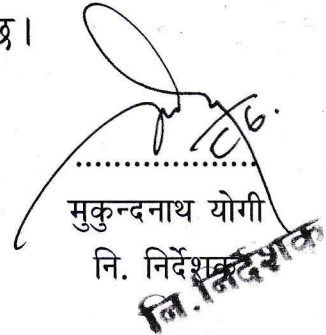 छ।
मुकुन्दनाथ योगी
नि. निर्देशक
नि. निर्देशक